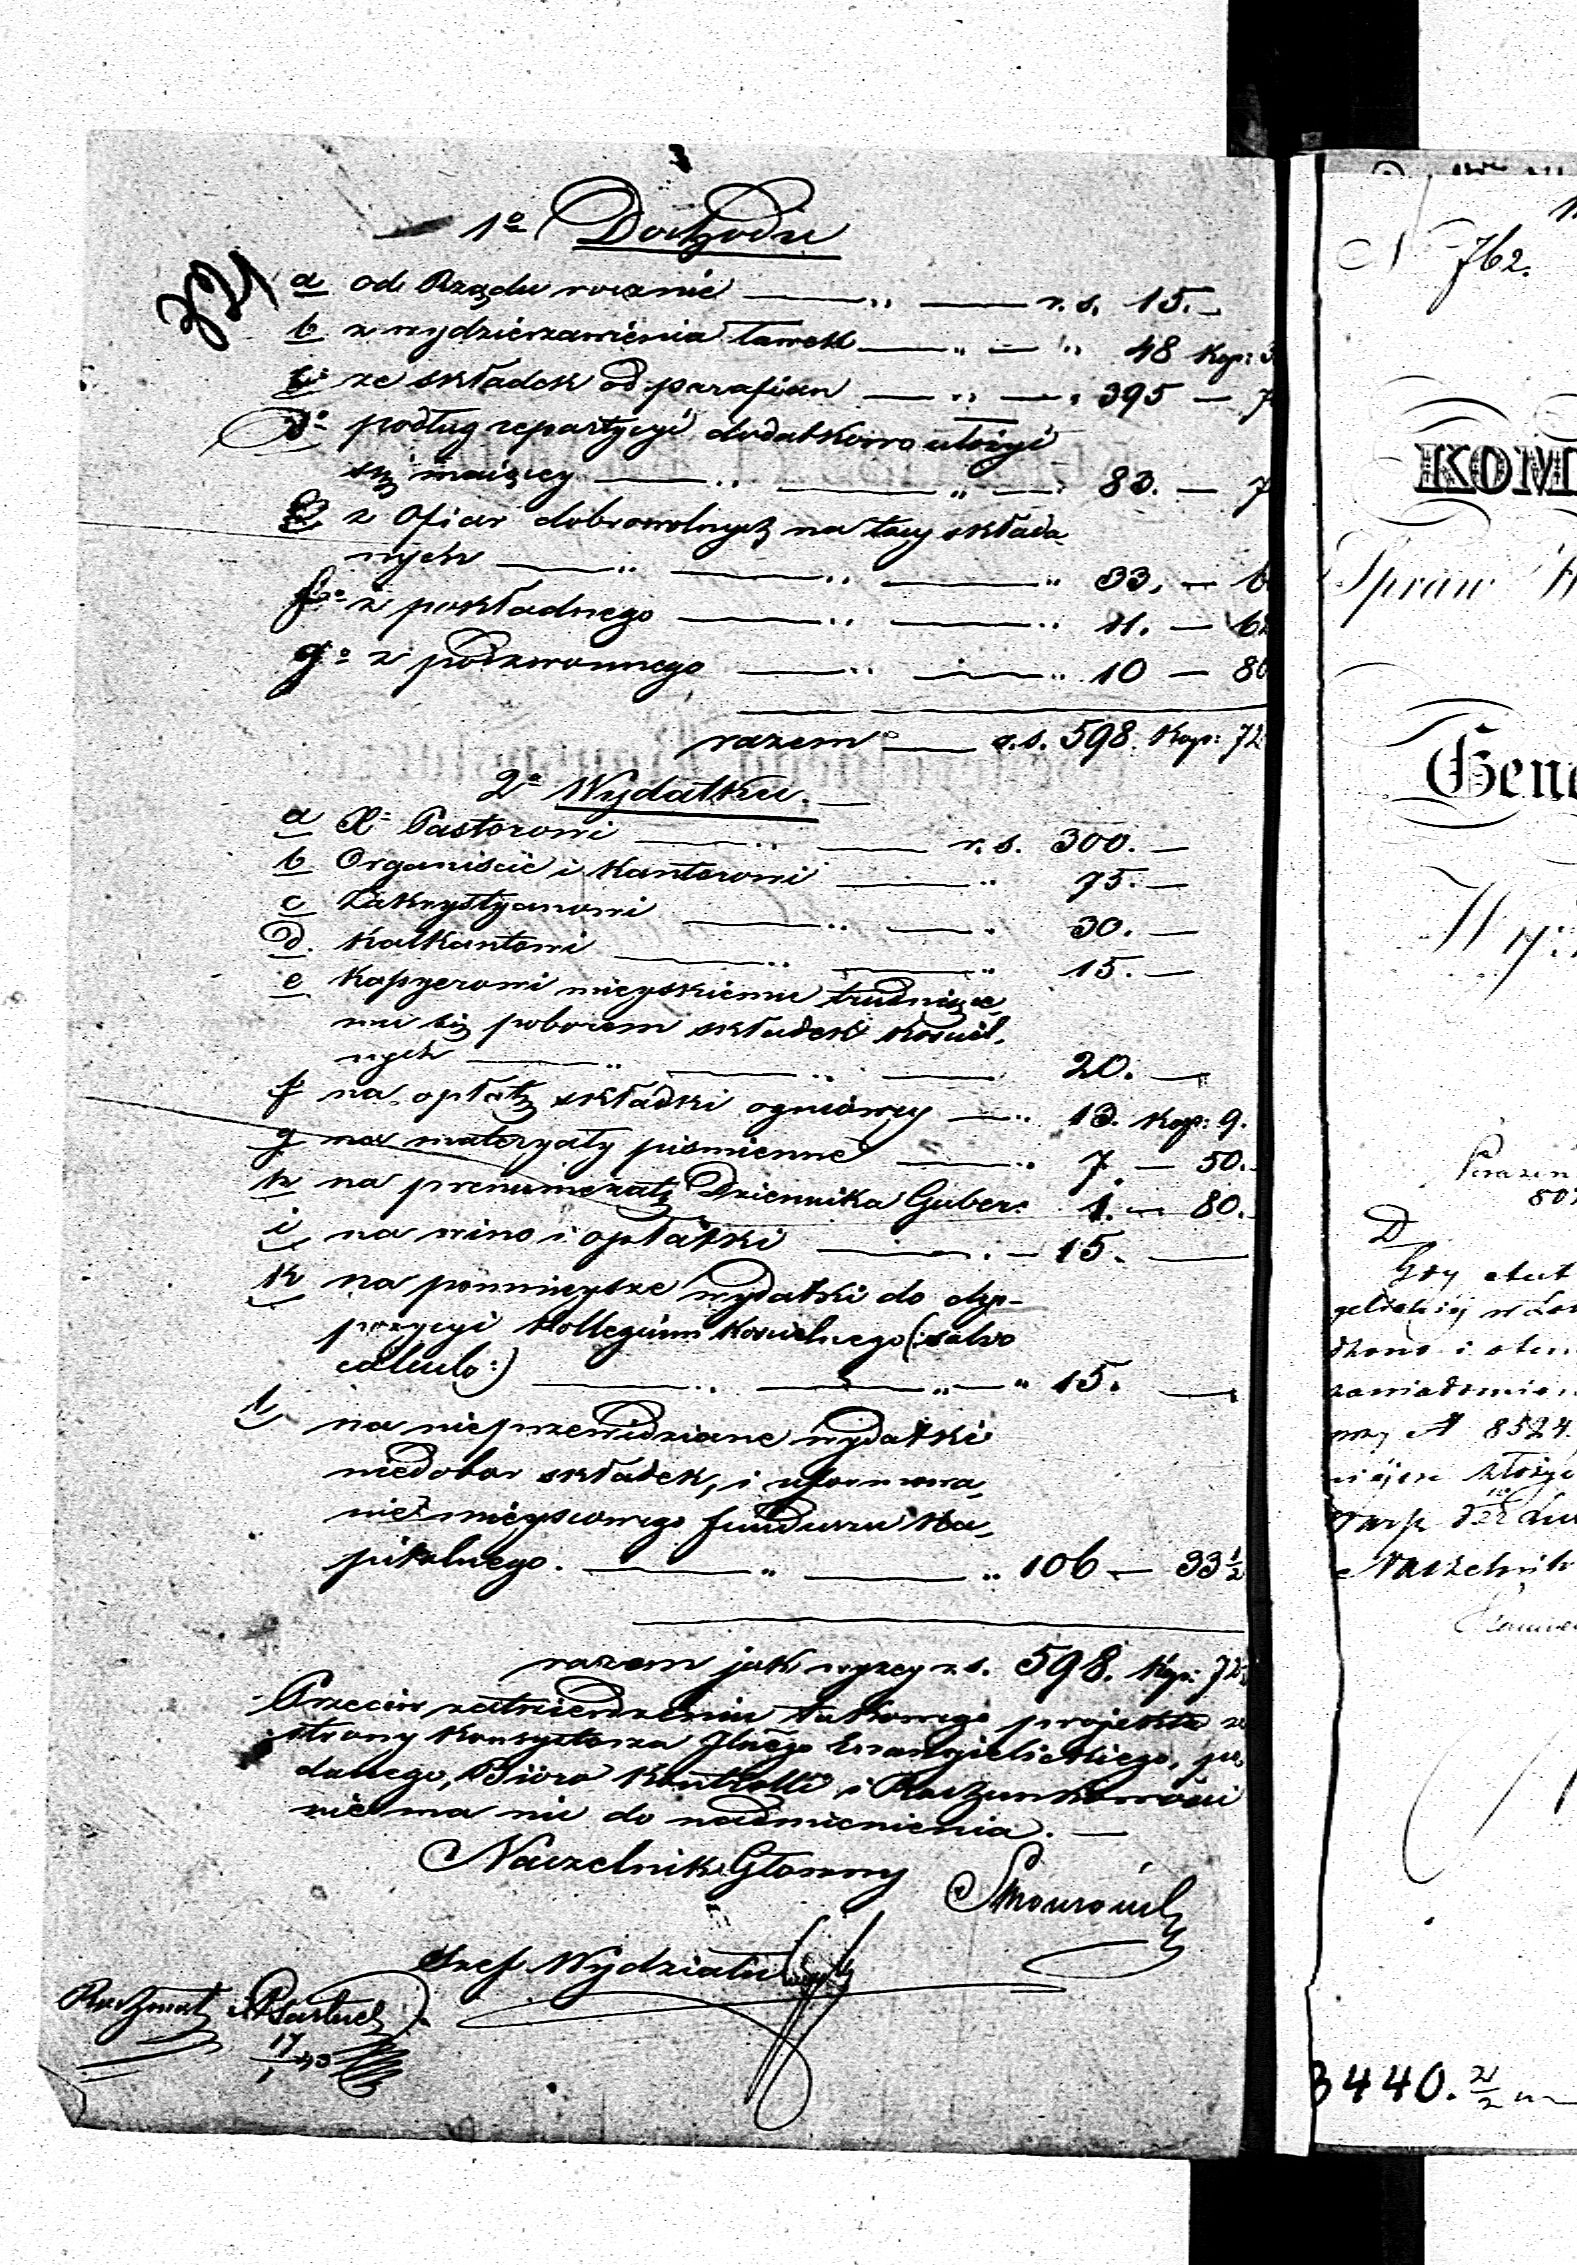 321
1º Dochodu
a od Rządu rocznie — „ — r. s. 15. —
b z wydzierzawienia ławek — „ — „ 48 Kop: 3
c ze składek od parafian — „ — „ 395 — 7
dº podług repartycyi dodatkowo ułożyć
się maiący — „ — „ — 83. — 7
e z ofiar dobrowolnych na tacy składa-
nych — „ — „ — „ 33. — 6
fº z pokładnego — „ — „ 11. — 62
gº z podzwonnego — „ — „ 10 — 80
razem — r. s. 598. Kop: 72
2º Wydatku. —
a X: Pastorowi — „ — r. s. 300. —
b Organiście i Kantorowi — „ 75. —
c Zakrystyanowi — „ — „ 30. —
d. Kalkantowi — „ — „ 15. —
e Kassyerowi mieyskiemu trudniące-
mu się poborem składek kościel-
nych — „ — „ — 20. —
f na opłatę składki ogniowey — „ 13. Kop: 9.
g na materyały pismienne — „ 7. — 50.
h na prenumeratę Dziennika Guber: 1. — 80.
i na wino i opłatki — „ — 15. —
k na pomnieysze wydatki do dys-
pozycyi Kollegium Kościelnego (: salvo
calculo :) — „ — „ — „ 15. —
l na nieprzewidziane wydatki
niedobor składek, i uformowa-
nie mieyscowego funduszu Ka-
pitalnego. — „ — „ 106 — 33½
razem jak wyzey r. s. 598. Kop: 72
Przeciw zatwierdzeniu takowego projektu ze
strony Konsystorza Jlnego Ewangielickiego, po-
danego, Biuro Kontrolli i Rachunkowości
niema nic do nadmienienia. —
Naczelnik Głowny
Szef Wydziału
17/1 43
N 762.
KOM
Spraw W
Gene
Wy
D
Gdy
zawiadomien
przy № 8524.
Naczelnik
3440. 21/2